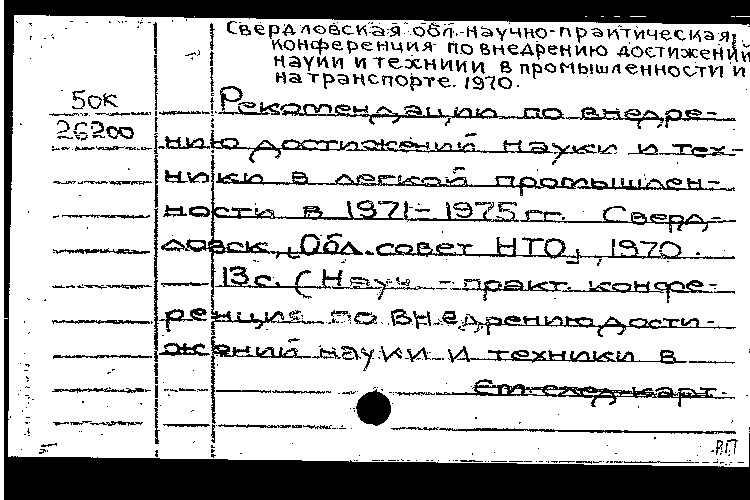 Свердловская обл. научно-практическая
конференция по внедрению достижений
науки и техники в промышленности и
на транспорте. 1970.
50К
26200
Рекомендации по внедре-
нию достижений науки и тех-
ники в легкой промышлен-
ности в 1971-1975 гг. Сверд-
ловск, „Обл. совет НТО", 1970.
13 с. (Науч.-практ. конфе-
ренция по внедрению дости-
жений науки и техники в
См. след. карт.
ВП